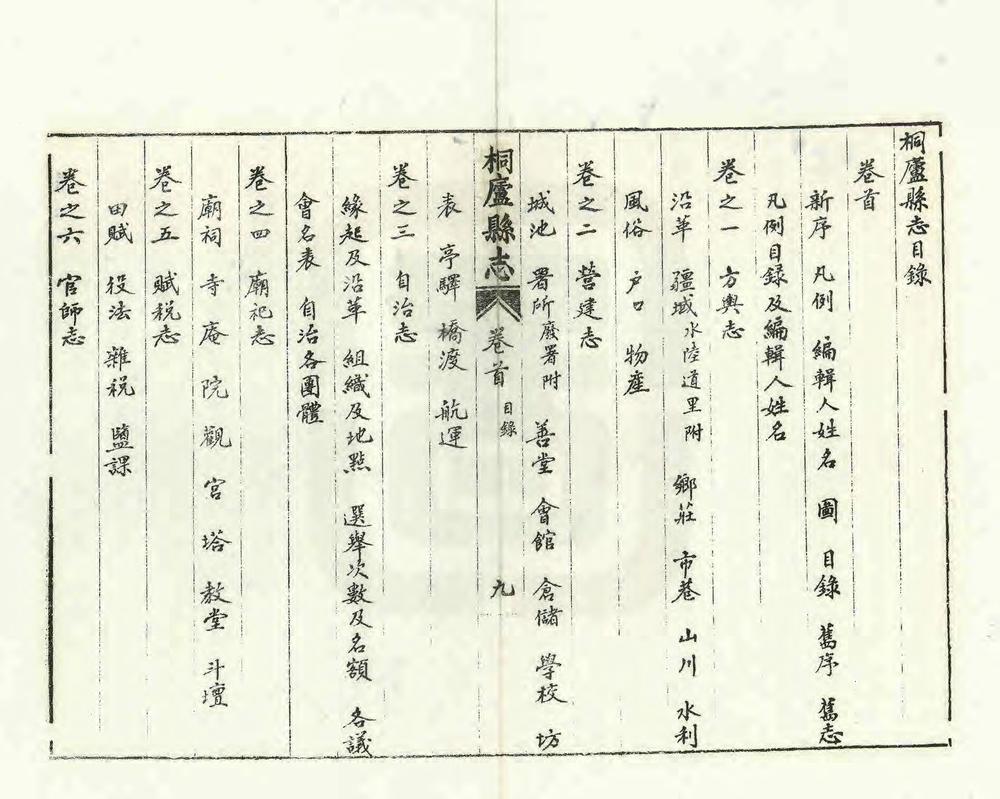 桐廬縣志目錄
卷首
新序 凡例 編輯人姓名 圖 目錄 舊序 舊志
凡例目錄及編輯人姓名
卷之一 方輿志
沿革 疆域水陸道里附 鄉莊 市巷 山川 水利
風俗 戶口 物產
卷之二 營建志
城池 署所廢署附 善堂 會館 倉儲 學校 坊
桐廬縣志 卷首 目錄 九
表 亭驛 橋渡 航運
卷之三 自治志
緣起及沿革 組織及地點 選舉次數及名額 各議
會名表 自治各團體
卷之四 廟祀志
廟祠 寺 庵 院 觀 宮 塔 教堂 斗壇
卷之五 賦稅志
田賦 役法 雜稅 鹽課
卷之六 官師志